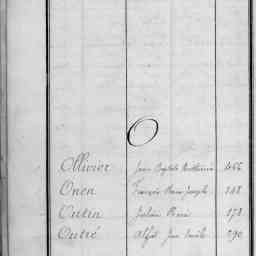 O
Ollivier Jean Baptiste 466
Onen François Marie Joseph 248
Outin Julien René 178
Outré Alfred Jean Emile 290